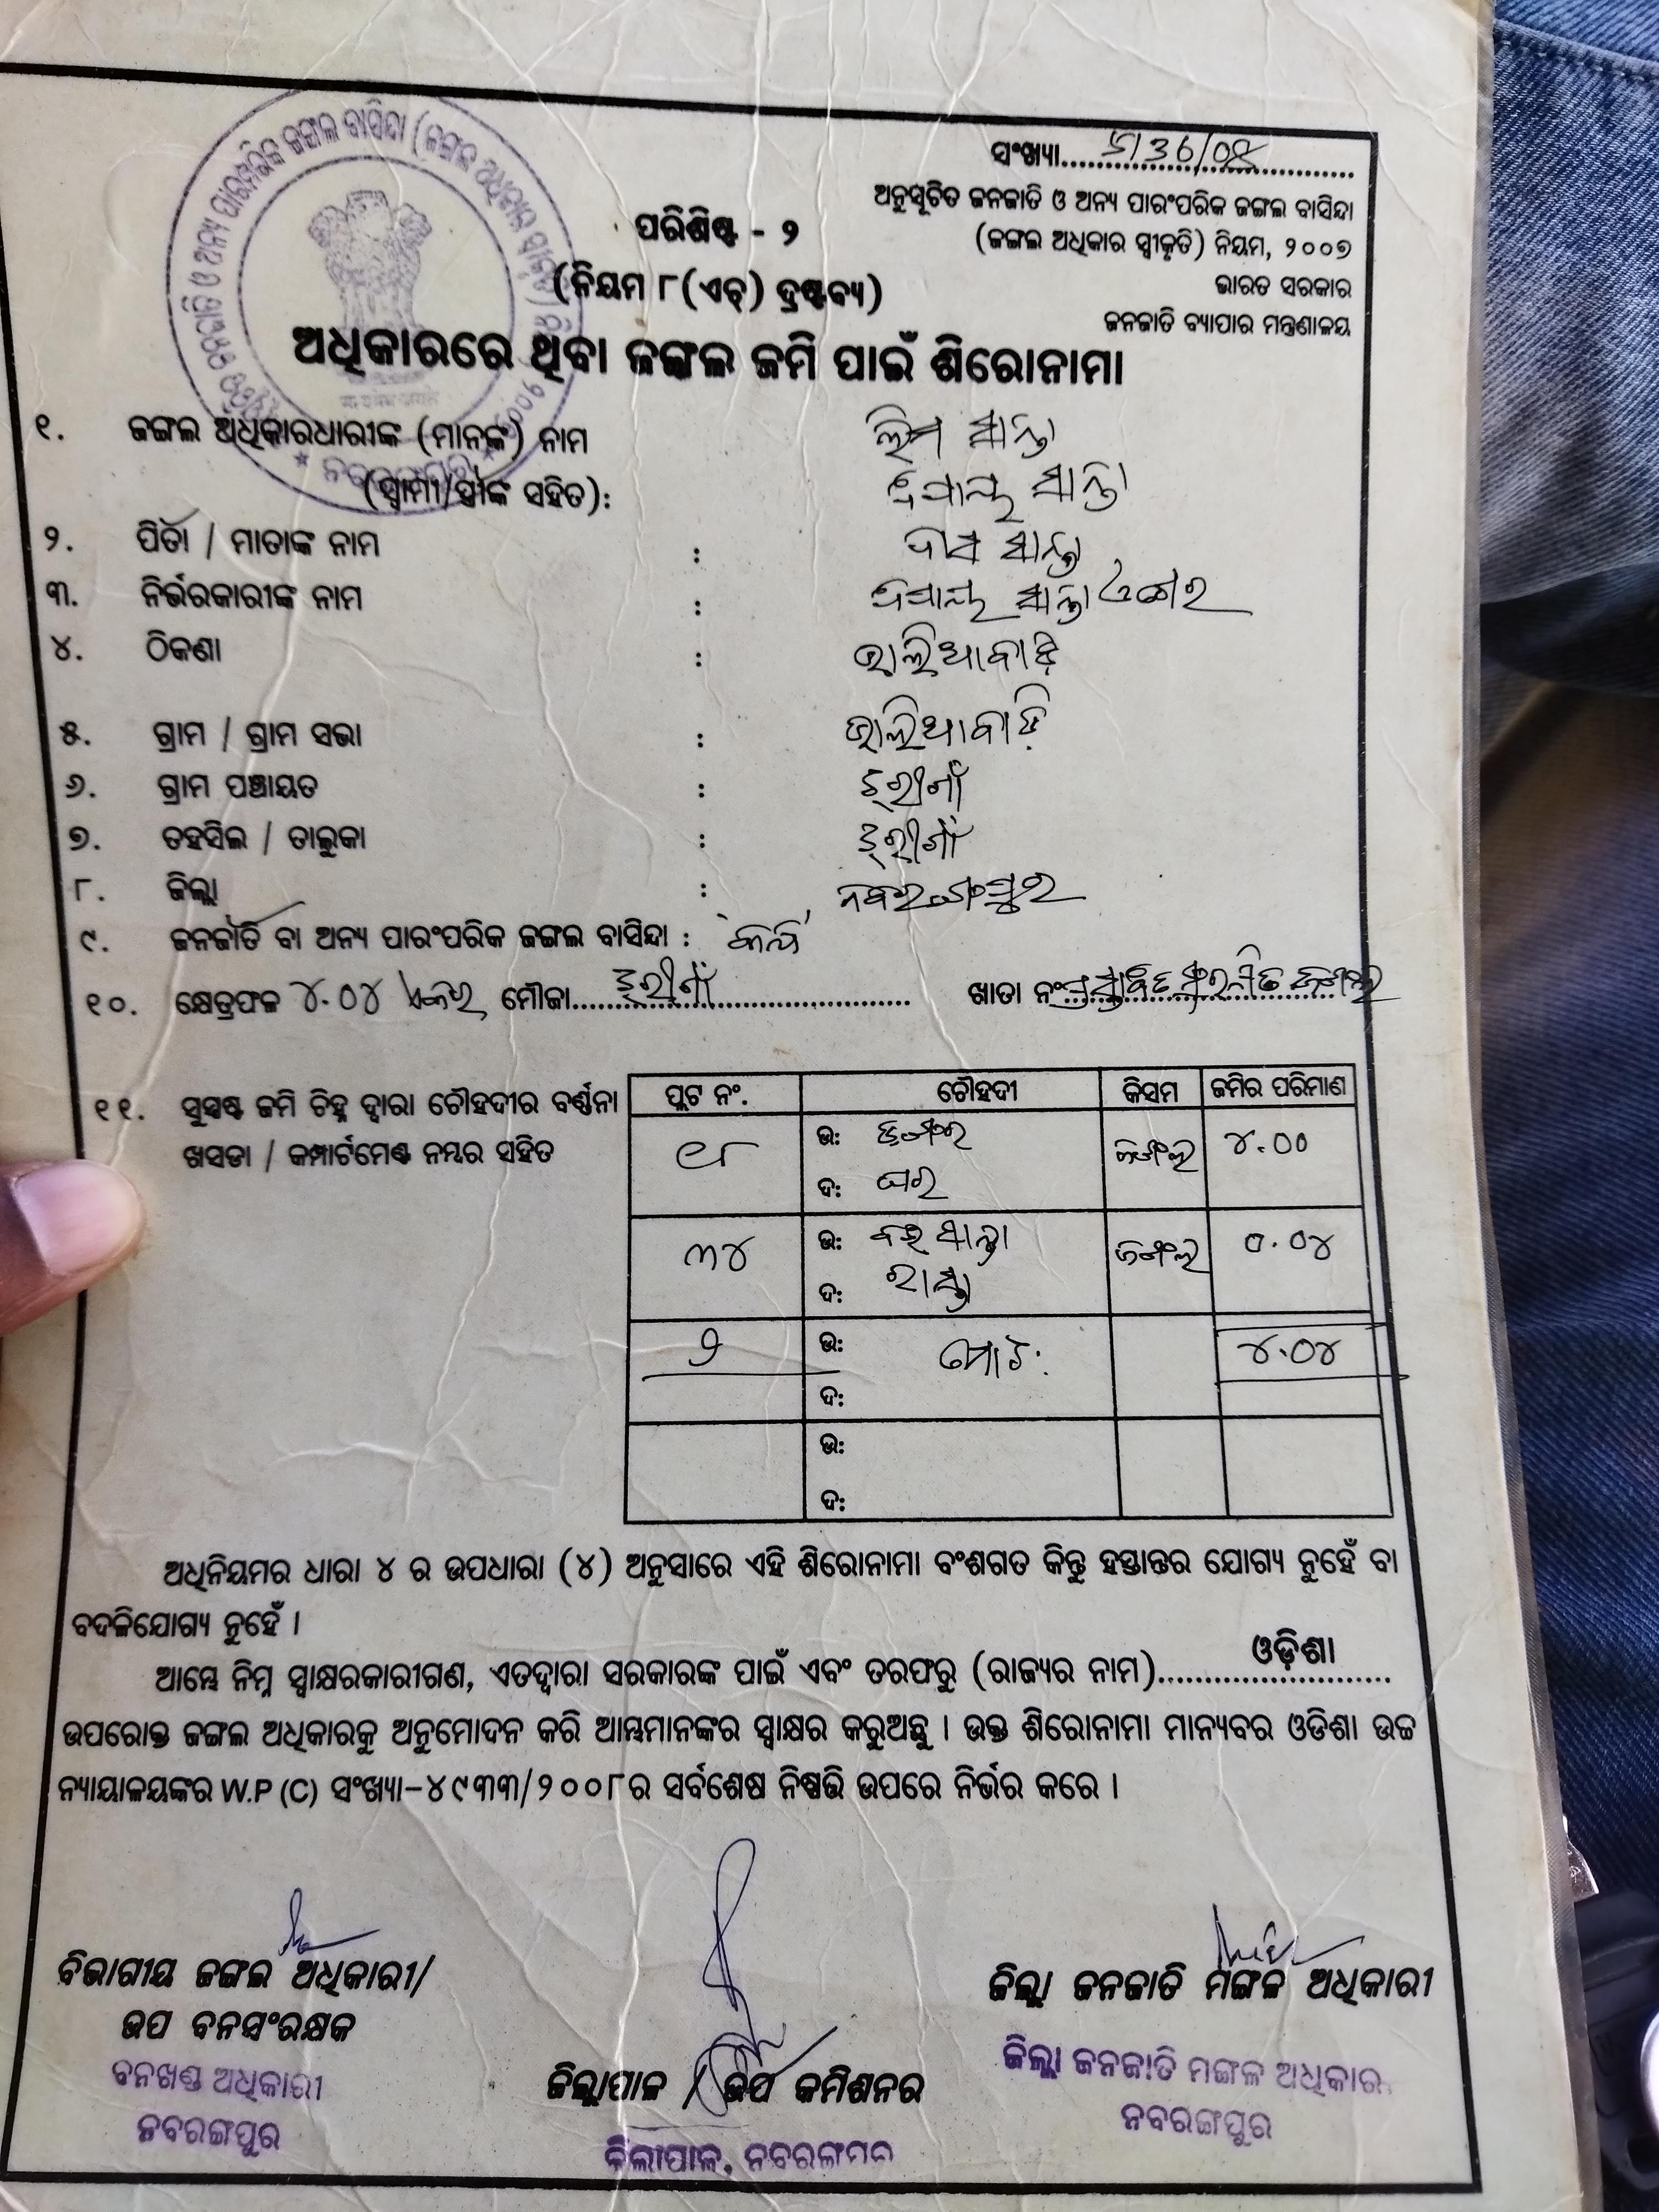 ସଂଖ୍ୟା
ଅନୁସୂଚିତ ଜନଜାତି ଓ ଅନ୍ୟ ପାରଂପରିକ ଜଙ୍ଗଲ ବାସିନ୍ଦା
(ଜଙ୍ଗଲ ଅଧିକାର ସ୍ୱୀକୃତି) ନିୟମ, ୨୦୦୭
ଭାରତ ସରକାର
ଜନଜାତି ବ୍ୟାପାର ମନ୍ତ୍ରଣାଳୟ
ପରିଶିଷ୍ଟ - ୨
(ନିୟମ ୮(ଏଚ୍) ଦ୍ରଷ୍ଟବ୍ୟ)
ଅଧିକାରରେ ଥିବା ଜଙ୍ଗଲ ଜମି ପାଇଁ ଶିରୋନାମା
୧. ଜଙ୍ଗଲ ଅଧିକାରଧାରୀଙ୍କ (ମାନଙ୍କ) ନାମ
(ସ୍ୱାମୀ/ସ୍ତ୍ରୀଙ୍କ ସହିତ):
୨. ପିତା / ମାତାଙ୍କ ନାମ :
୩. ନିର୍ଭରକାରୀଙ୍କ ନାମ :
୪. ଠିକଣା : ଭାଲିଆବାଡ଼ି
୫. ଗ୍ରାମ / ଗ୍ରାମ ସଭା : ଭାଲିଆବାଡ଼ି
୬. ଗ୍ରାମ ପଞ୍ଚାୟତ : ଝରୀଗାଁ
୭. ତହସିଲ / ତାଲୁକା : ଝରୀଗାଁ
୮. ଜିଲ୍ଲା : ନବରଙ୍ଗପୁର
୯. ଜନଜାତି ବା ଅନ୍ୟ ପାରଂପରିକ ଜଙ୍ଗଲ ବାସିନ୍ଦା :
୧୦. କ୍ଷେତ୍ରଫଳ ୪.୦୪ ଏକର ମୌଜା ଝରୀଗାଁ ଖାତା ନଂ
୧୧. ସୁସ୍ପଷ୍ଟ ଜମି ଚିହ୍ନ ଦ୍ୱାରା ଚୌହଦୀର ବର୍ଣ୍ଣନା
ଖସଡା / କମ୍ପାର୍ଟମେଣ୍ଟ ନମ୍ବର ସହିତ
ପ୍ଲଟ ନଂ. ଚୌହଦୀ କିସମ ଜମିର ପରିମାଣ
୯୮ ଉ: ଡଙ୍ଗର ଜଙ୍ଗଲ ୪.୦୦
ଦ: ଘର
୩୪ ଉ: ସାନ୍ତା ଜଙ୍ଗଲ ୦.୦୪
ଦ: ରାସ୍ତା
୨ ଉ: ମୋଟ: ୪.୦୪
ଦ:
ଉ:
ଦ:
ଅଧିନିୟମର ଧାରା ୪ ର ଉପଧାରା (୪) ଅନୁସାରେ ଏହି ଶିରୋନାମା ବଂଶଗତ କିନ୍ତୁ ହସ୍ତାନ୍ତର ଯୋଗ୍ୟ ନୁହେଁ ବା
ବଦଳିଯୋଗ୍ୟ ନୁହେଁ ।
ଆମ୍ଭେ ନିମ୍ନ ସ୍ୱାକ୍ଷରକାରୀଗଣ, ଏତଦ୍ୱାରା ସରକାରଙ୍କ ପାଇଁ ଏବଂ ତରଫରୁ (ରାଜ୍ୟର ନାମ) ଓଡ଼ିଶା
ଉପରୋକ୍ତ ଜଙ୍ଗଲ ଅଧିକାରକୁ ଅନୁମୋଦନ କରି ଆମ୍ଭମାନଙ୍କର ସ୍ୱାକ୍ଷର କରୁଅଛୁ । ଉକ୍ତ ଶିରୋନାମା ମାନ୍ୟବର ଓଡିଶା ଉଚ୍ଚ
ନ୍ୟାୟାଳୟଙ୍କର W.P (C) ସଂଖ୍ୟା-୪୯୩୩/୨୦୦୮ର ସର୍ବଶେଷ ନିଷ୍ପତ୍ତି ଉପରେ ନିର୍ଭର କରେ ।
ବିଭାଗୀୟ ଜଙ୍ଗଲ ଅଧିକାରୀ/
ଉପ ବନସଂରକ୍ଷକ
ବନଖଣ୍ଡ ଅଧିକାରୀ
ନବରଙ୍ଗପୁର
ଜିଲ୍ଲାପାଳ / ଉପ କମିଶନର
ଜିଲ୍ଲାପାଳ, ନବରଙ୍ଗପୁର
ଜିଲ୍ଲା ଜନଜାତି ମଙ୍ଗଳ ଅଧିକାରୀ
ଜିଲ୍ଲା ଜନଜାତି ମଙ୍ଗଳ ଅଧିକାରୀ
ନବରଙ୍ଗପୁର